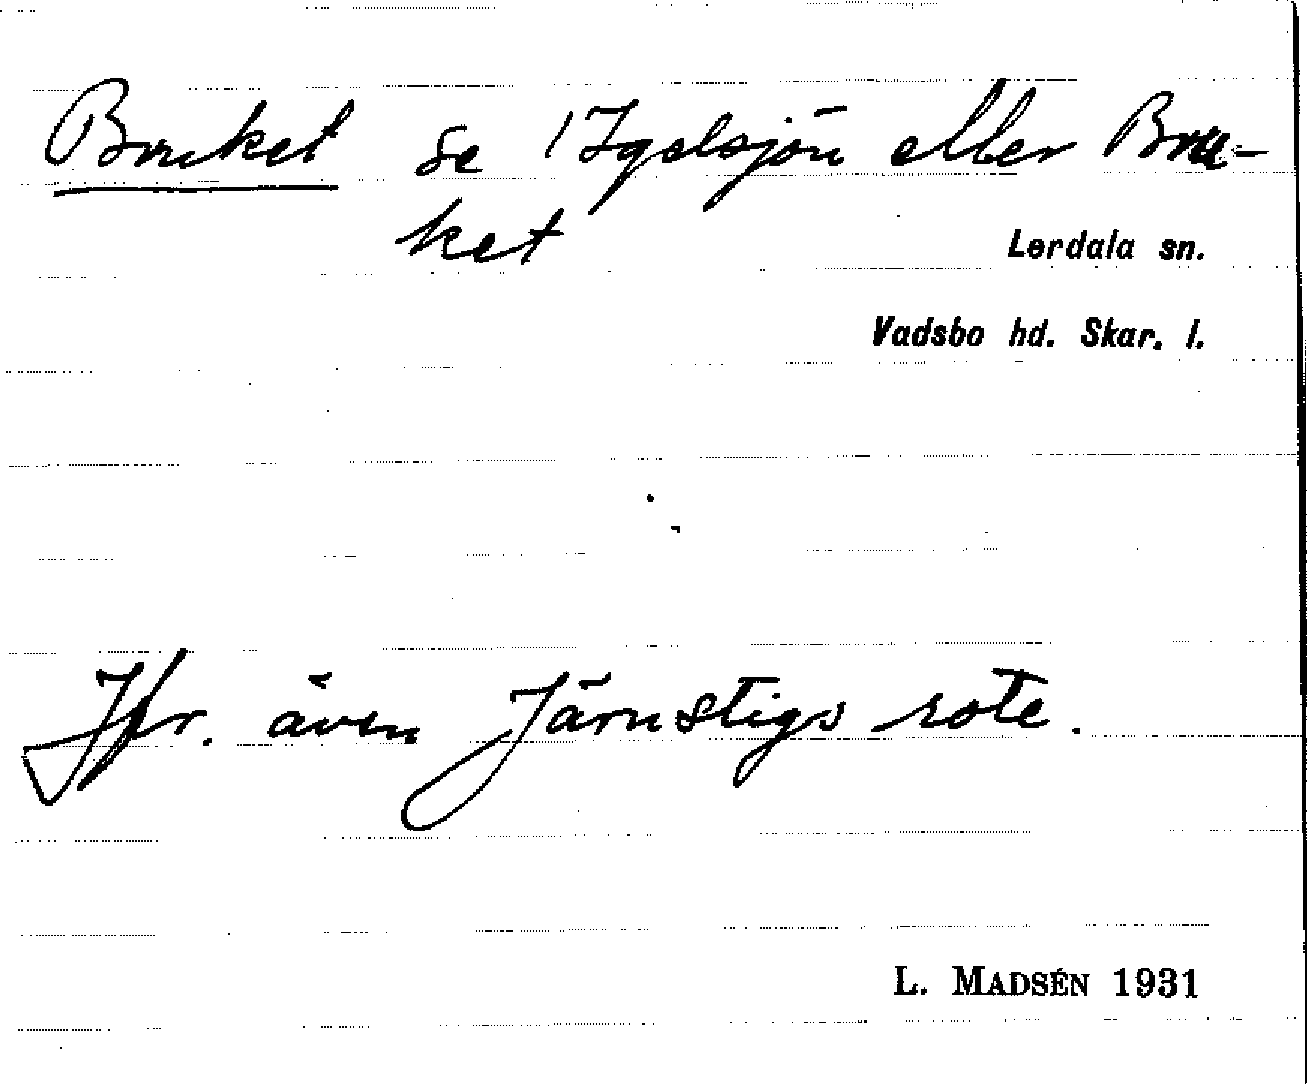 Bruket se 1 Igelsjön eller Bru-
ket
Lerdala sn.
Vadsbo hd. Skar. l.
Jfr. även Järnstigs rote.
L. MADSÉN 1931